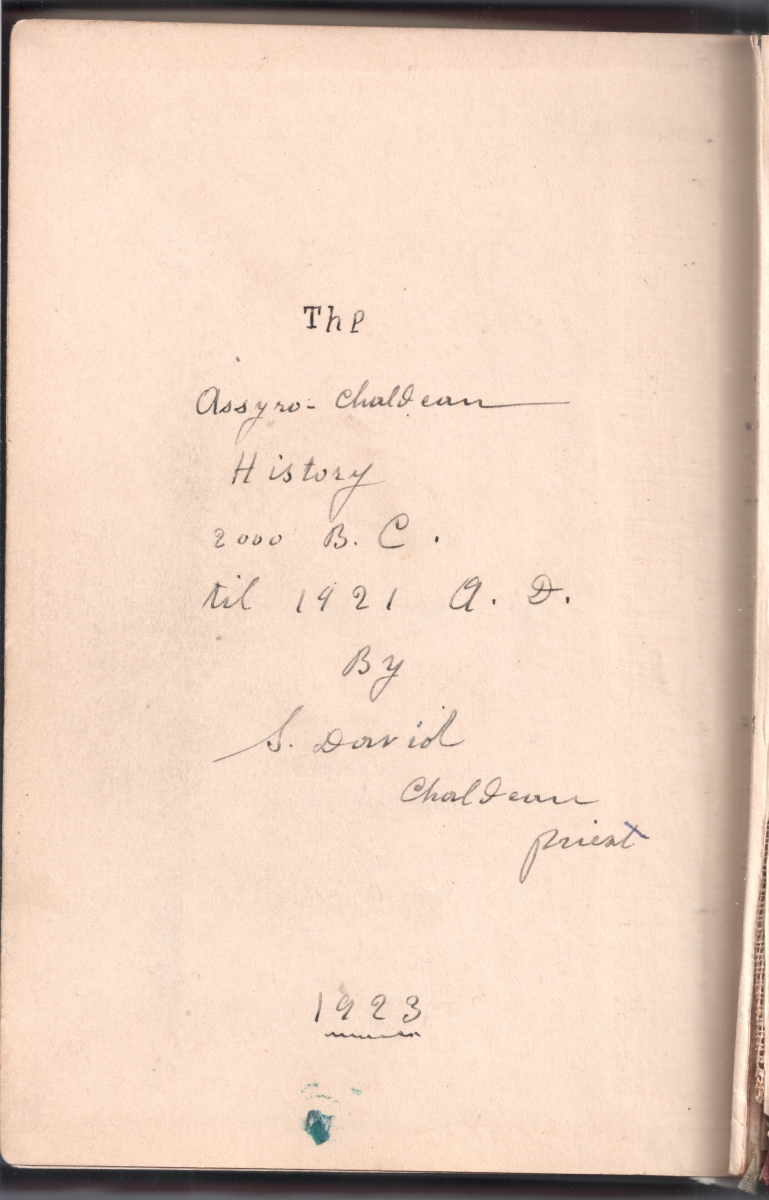 The
Assyro- Chaldean
History
2000 B. C.
til 1921 A. D.
By
S. David
Chaldean
priest
1923